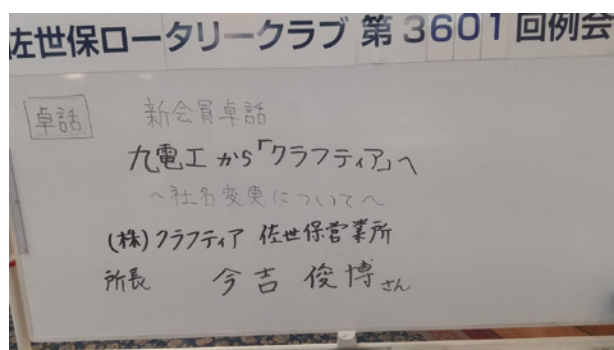 佐世保ロータリークラブ 第3601回例会
卓話 新会員卓話
九電工から「クラフティア」へ
〜社名変更について〜
(株)クラフティア 佐世保営業所
所長 今吉 俊博さん